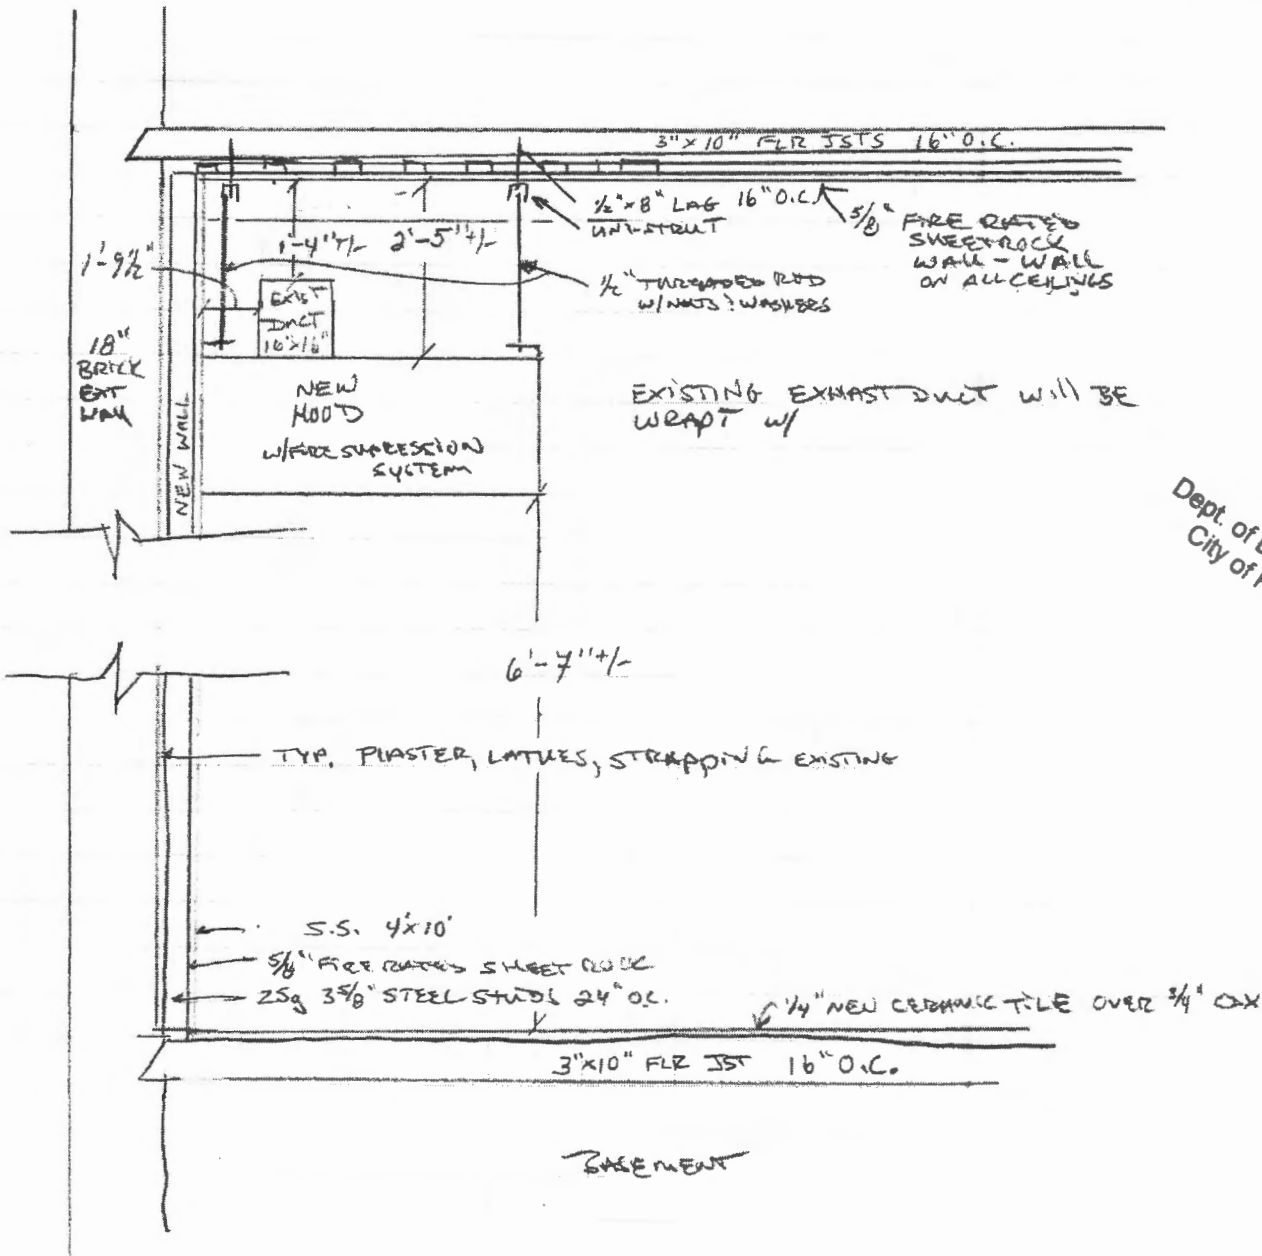 3"x10" FLR JSTS 16" O.C.
1/2"x8" LAG 16" O.C.
UNI-STRUT
5/8" FIRE RATED
SHEETROCK
WALL - WALL
ON ALL CEILINGS
1'-4"+/-
2'-5"+/-
1'-9 1/2"
1/2" THREADED ROD
W/NUTS & WASHERS
EXIST
DUCT
16"x16"
18"
BRICK
EXT
WALL
NEW WALL
NEW
HOOD
W/FIRE SUPRESSION
SYSTEM
EXISTING EXHAST DUCT WILL BE
WRAPT W/
Dept. of
City of
6'-7"+/-
TYP. PLASTER, LATHES, STRAPPING EXISTING
S.S. 4'x10'
5/8" FIRE RATED SHEET ROCK
25g 3 5/8" STEEL STUDS 24" O.C.
1/4" NEW CERAMIC TILE OVER 3/4" CDX
3"x10" FLR JST 16" O.C.
BASEMENT